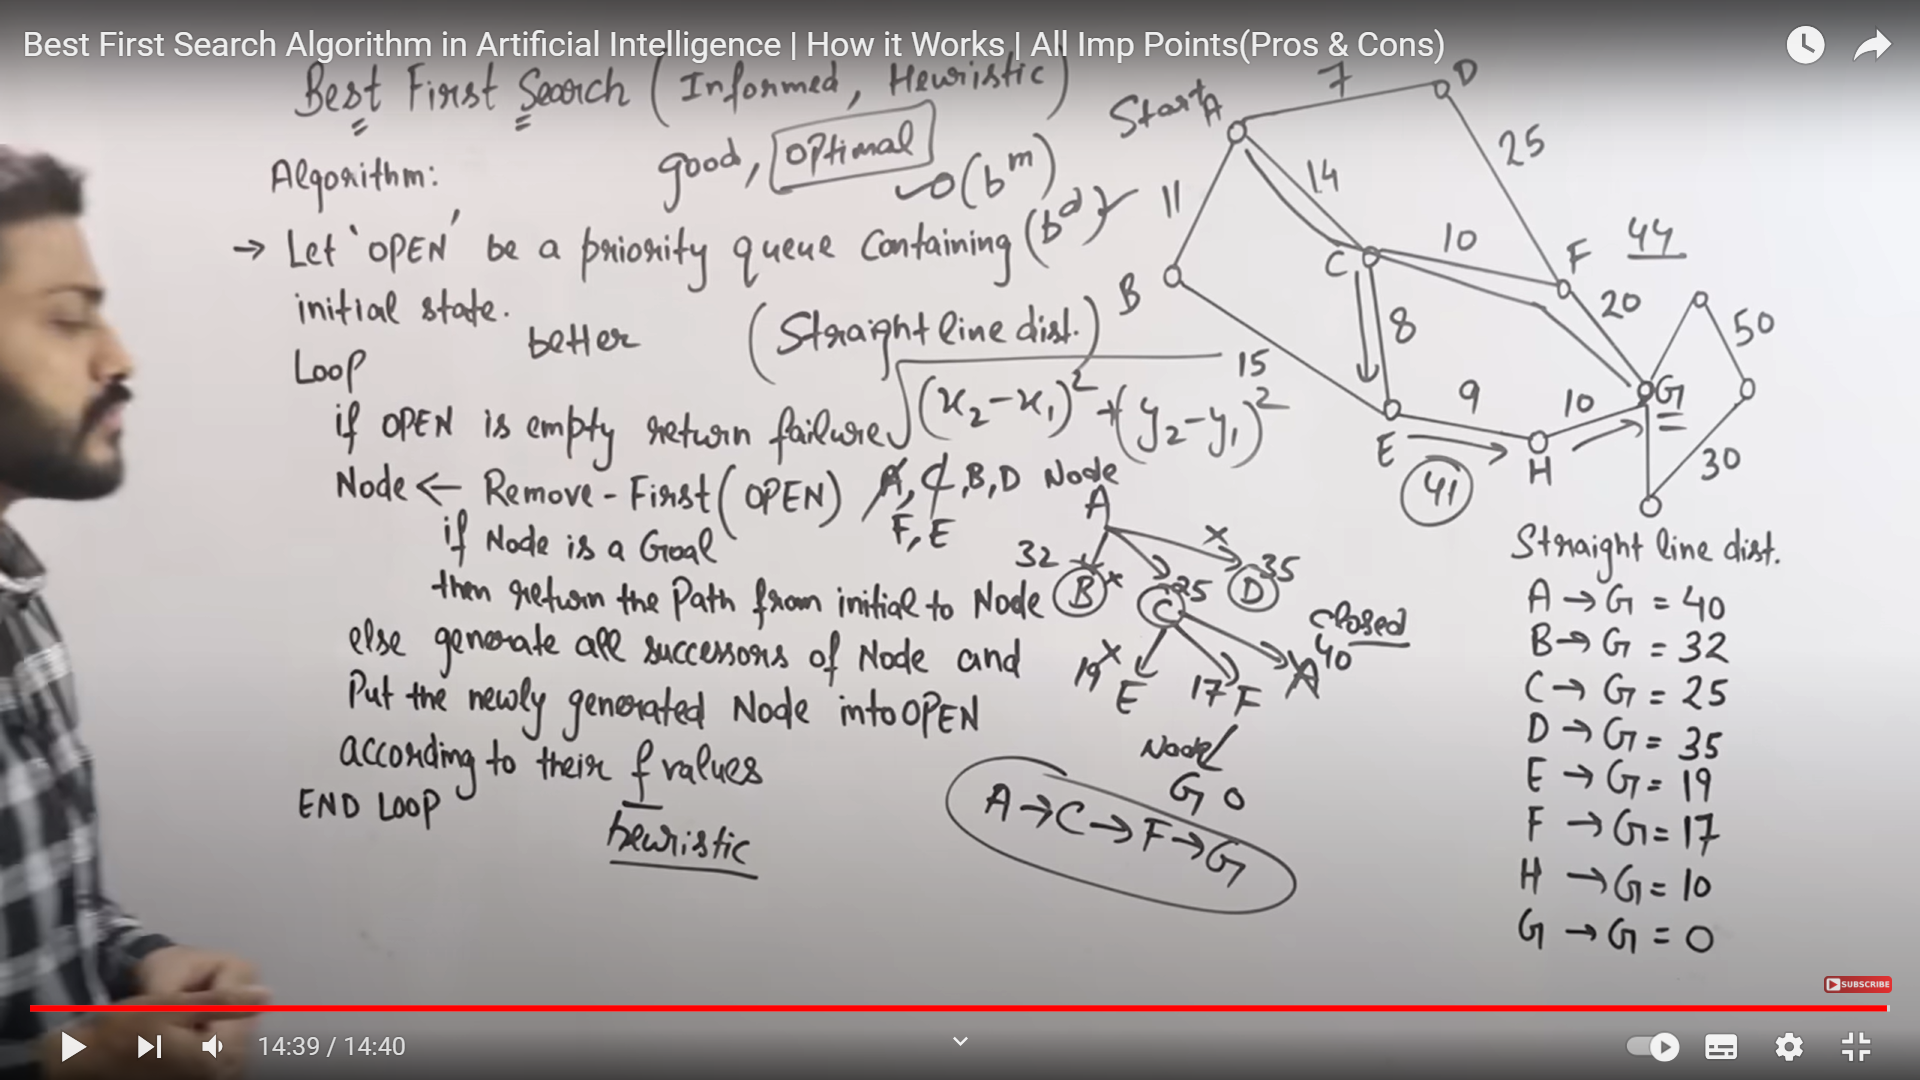 Best First Search Algorithm in Artificial Intelligence | How it Works | All Imp Points(Pros & Cons)
Best First Search (Informed, Heuristic)
good, OPtimal
O(b^m)
(b^d)
Algorithm:
→ Let 'OPEN' be a priority queue Containing
initial state.
better
(Straight line dist.)
Loop
√(x₂-x₁)²+(y₂-y₁)²
if OPEN is empty return failure
Node ← Remove-First(OPEN) A, C, B, D Node
F, E
if Node is a Goal
then return the Path from initial to Node
else generate all successors of Node and
Put the newly generated Node into OPEN
according to their f values
heuristic
END LOOP
A
32 B x
C 25
x D 35
Closed
19 x E
17 F
A 40
Node
G 0
A → C → F → G
Start A
7
D
25
14
11
B
C
10
F
44
20
8
15
E
9
H
10
G
50
30
41
Straight line dist.
A → G = 40
B → G = 32
C → G = 25
D → G = 35
E → G = 19
F → G = 17
H → G = 10
G → G = 0
SUBSCRIBE
14:39 / 14:40